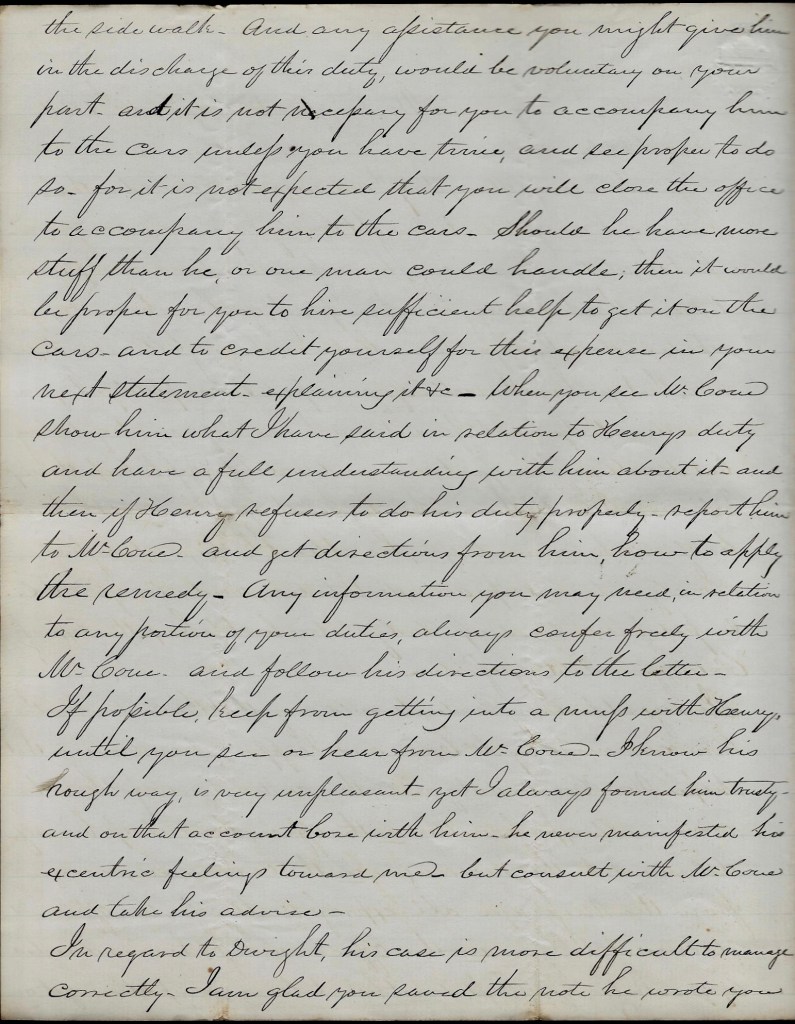 the side walk - And any assistance you might give him
in the discharge of this duty, would be voluntary on your
part - and it is not necessary for you to accompany him
to the cars unless you have time, and see proper to do
so - for it is not expected that you will close the office
to accompany him to the cars - Should he have more
stuff than he, or one man could handle, then it would
be proper for you to hire sufficient help to get it on the
cars - and to credit yourself for this expense in your
next statement - explaining it &c - When you see Mr. Cone
show him what I have said in relation to Henrys duty
and have a full understanding with him about it - and
then if Henry refuses to do his duty properly - report him
to Mr. Cone - and get directions from him, how to apply
the remedy - Any information you may need, in relation
to any portion of your duties, always confer freely with
Mr. Cone - and follow his directions to the letter -
If possible, keep from getting into a muss with Henry,
until you see or hear from Mr. Cone - I know his
rough way, is very unpleasant - yet I always found him trusty -
and on that account bore with him - he never manifested his
excentric feelings toward me - but consult with Mr. Cone
and take his advise -
In regard to Dwight, his case is more difficult to manage
correctly - I am glad you saved the note he wrote you